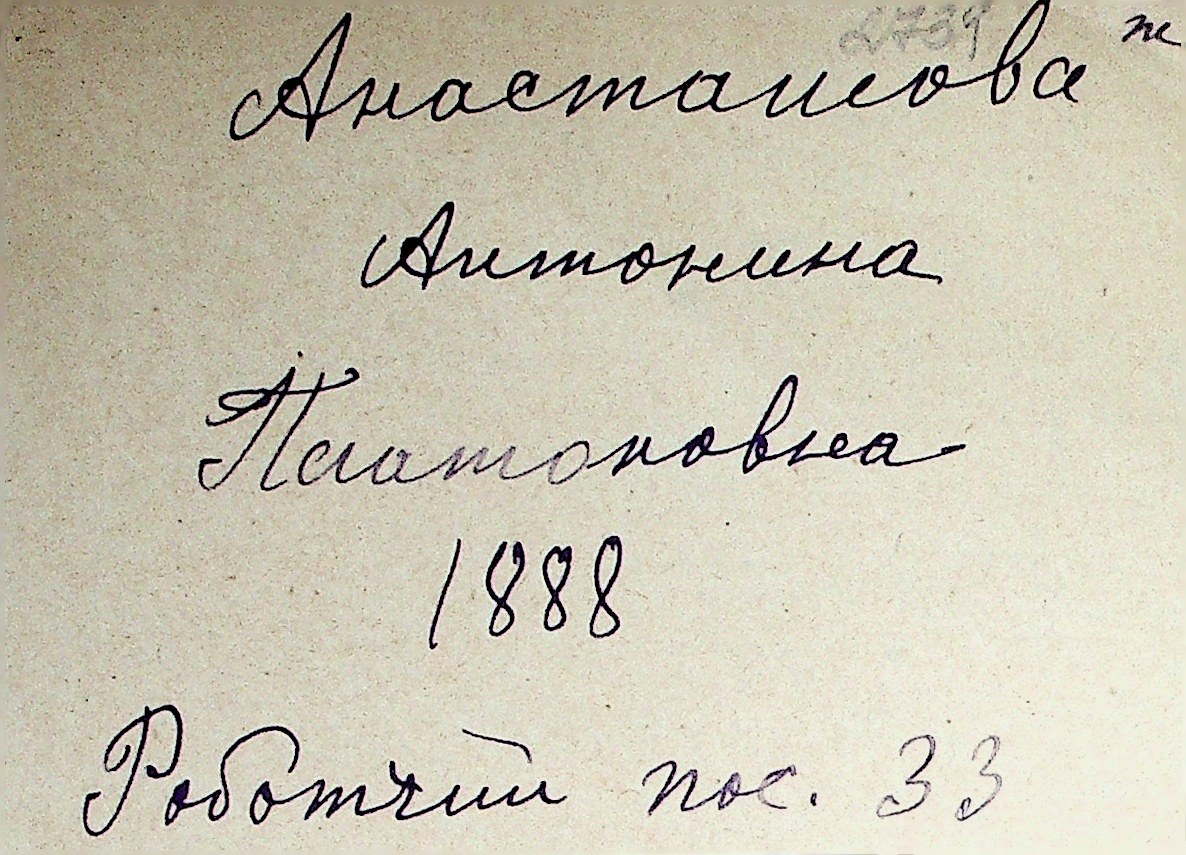 Анастаисова ж
Антонина
Платоновна
1888
Роботчий пос. 33